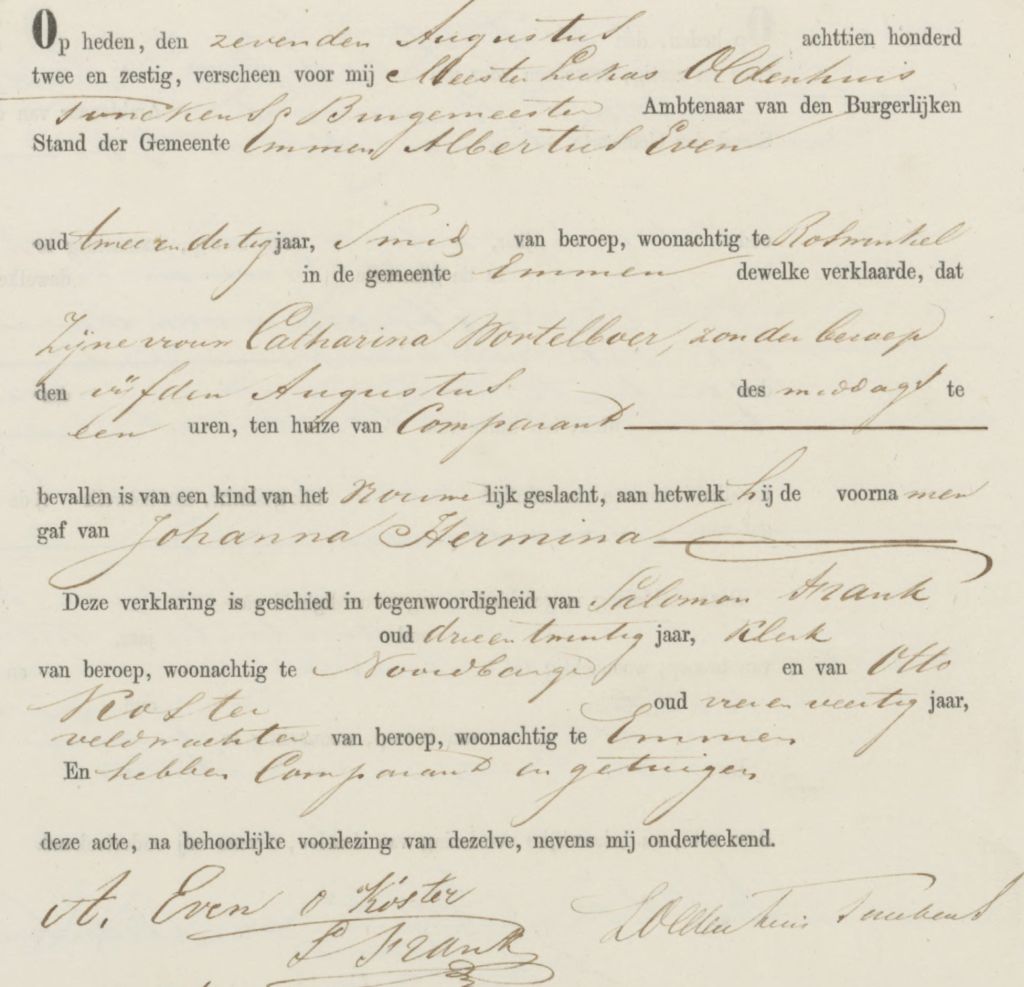 Op heden, den zevenden Augustus achttien honderd
twee en zestig, verscheen voor mij Meester Lukas Oldenhuis
Tonckens, Burgemeester Ambtenaar van den Burgerlijken
Stand der Gemeente Emmen Albertus Even
oud twee en dertig jaar, Smid van beroep, woonachtig te Roswinkel
in de gemeente Emmen dewelke verklaarde, dat
Zijne vrouw Catharina Wortelboer, zonder beroep
den vijfden Augustus des middags te
een uren, ten huize van Comparant
bevallen is van een kind van het vrouwelijk geslacht, aan hetwelk hij de voornamen
gaf van Johanna Hermina
Deze verklaring is geschied in tegenwoordigheid van Salomon Frank
oud drieentwintig jaar, Klerk
van beroep, woonachtig te Noordbarge en van Otto
Köster oud vier en veertig jaar,
veldwachter van beroep, woonachtig te Emmen
En hebben Comparant en getuigen
deze acte, na behoorlijke voorlezing van dezelve, nevens mij onderteekend.
A. Even O Köster LOldenhuis Tonckens
S Frank